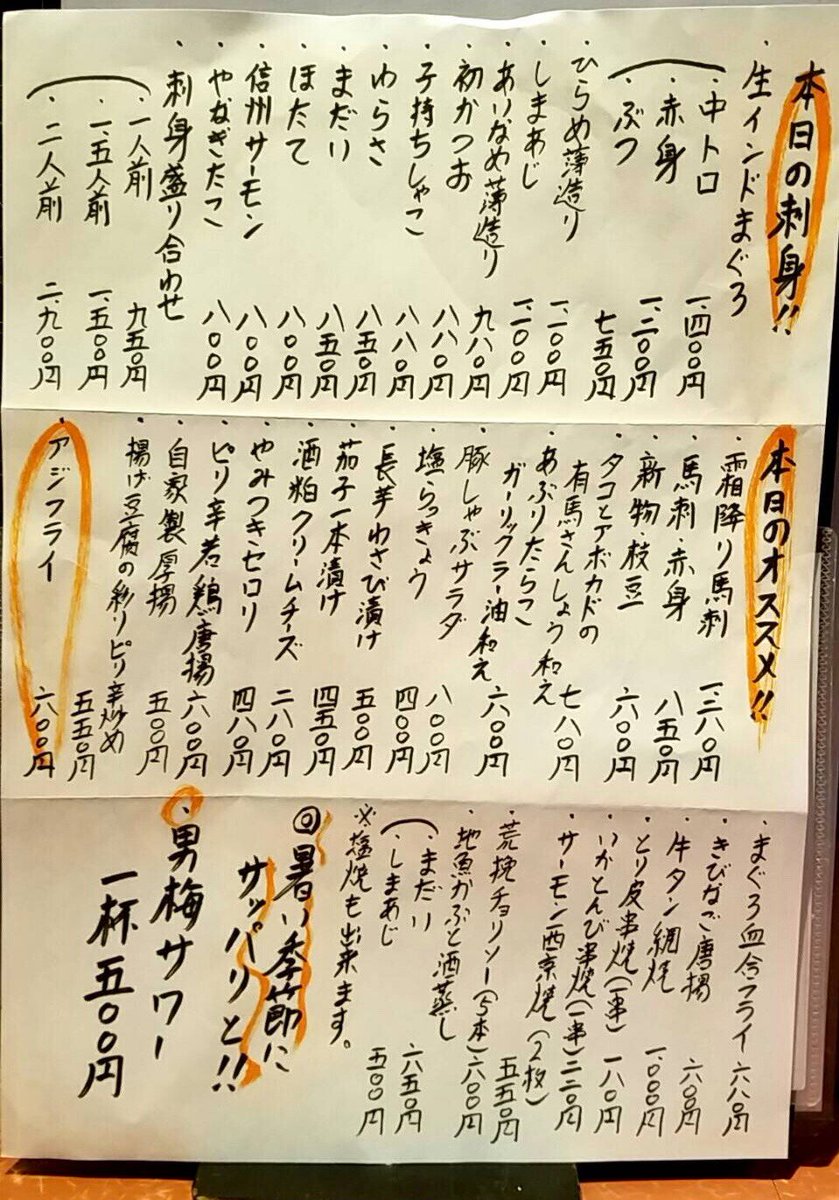 本日の刺身!!
・生インドまぐろ
・中トロ 一、四〇〇円
・赤身 一、二〇〇円
・ぶつ 七五〇円
・ひらめ薄造り 一、一〇〇円
・しまあじ 一、一〇〇円
・あいなめ薄造り 九八〇円
・初かつお 八八〇円
・子持ちしゃこ 八八〇円
・わらさ 八五〇円
・まだい 八五〇円
・ほたて 八〇〇円
・信州サーモン 八〇〇円
・やなぎたこ 八〇〇円
・刺身盛り合わせ
・一人前 九五〇円
・一、五人前 一、五〇〇円
・二人前 二、九〇〇円
本日のオススメ!!
・霜降り馬刺 一、三八〇円
・馬刺・赤身 八五〇円
・新物枝豆 六〇〇円
・タコとアボカドの
有馬さんしょう和え 七八〇円
・あぶりたらこ
ガーリックラー油和え 六〇〇円
・豚しゃぶサラダ 八〇〇円
・塩らっきょう 四〇〇円
・長芋わさび漬け 五〇〇円
・茄子一本漬け 四五〇円
・酒粕クリームチーズ 二八〇円
・やみつきセロリ 四八〇円
・ピリ辛若鶏唐揚 六〇〇円
・自家製厚揚 五〇〇円
・揚げ豆腐の彩りピリ辛炒め 五五〇円
・アジフライ 六〇〇円
・まぐろ血合フライ 六八〇円
・きびなご唐揚 六〇〇円
・牛タン網焼 一、〇〇〇円
・とり皮串焼(一串) 一八〇円
・いかとんび串焼(一串) 二二〇円
・サーモン西京焼(2枚) 五五〇円
・荒挽チョリソー(5本) 六〇〇円
・地魚かぶと酒蒸し
・まだい 六五〇円
・しまあじ 五〇〇円
※塩焼も出来ます。
◎暑い季節に
サッパリと!!
・男梅サワー
一杯五〇〇円